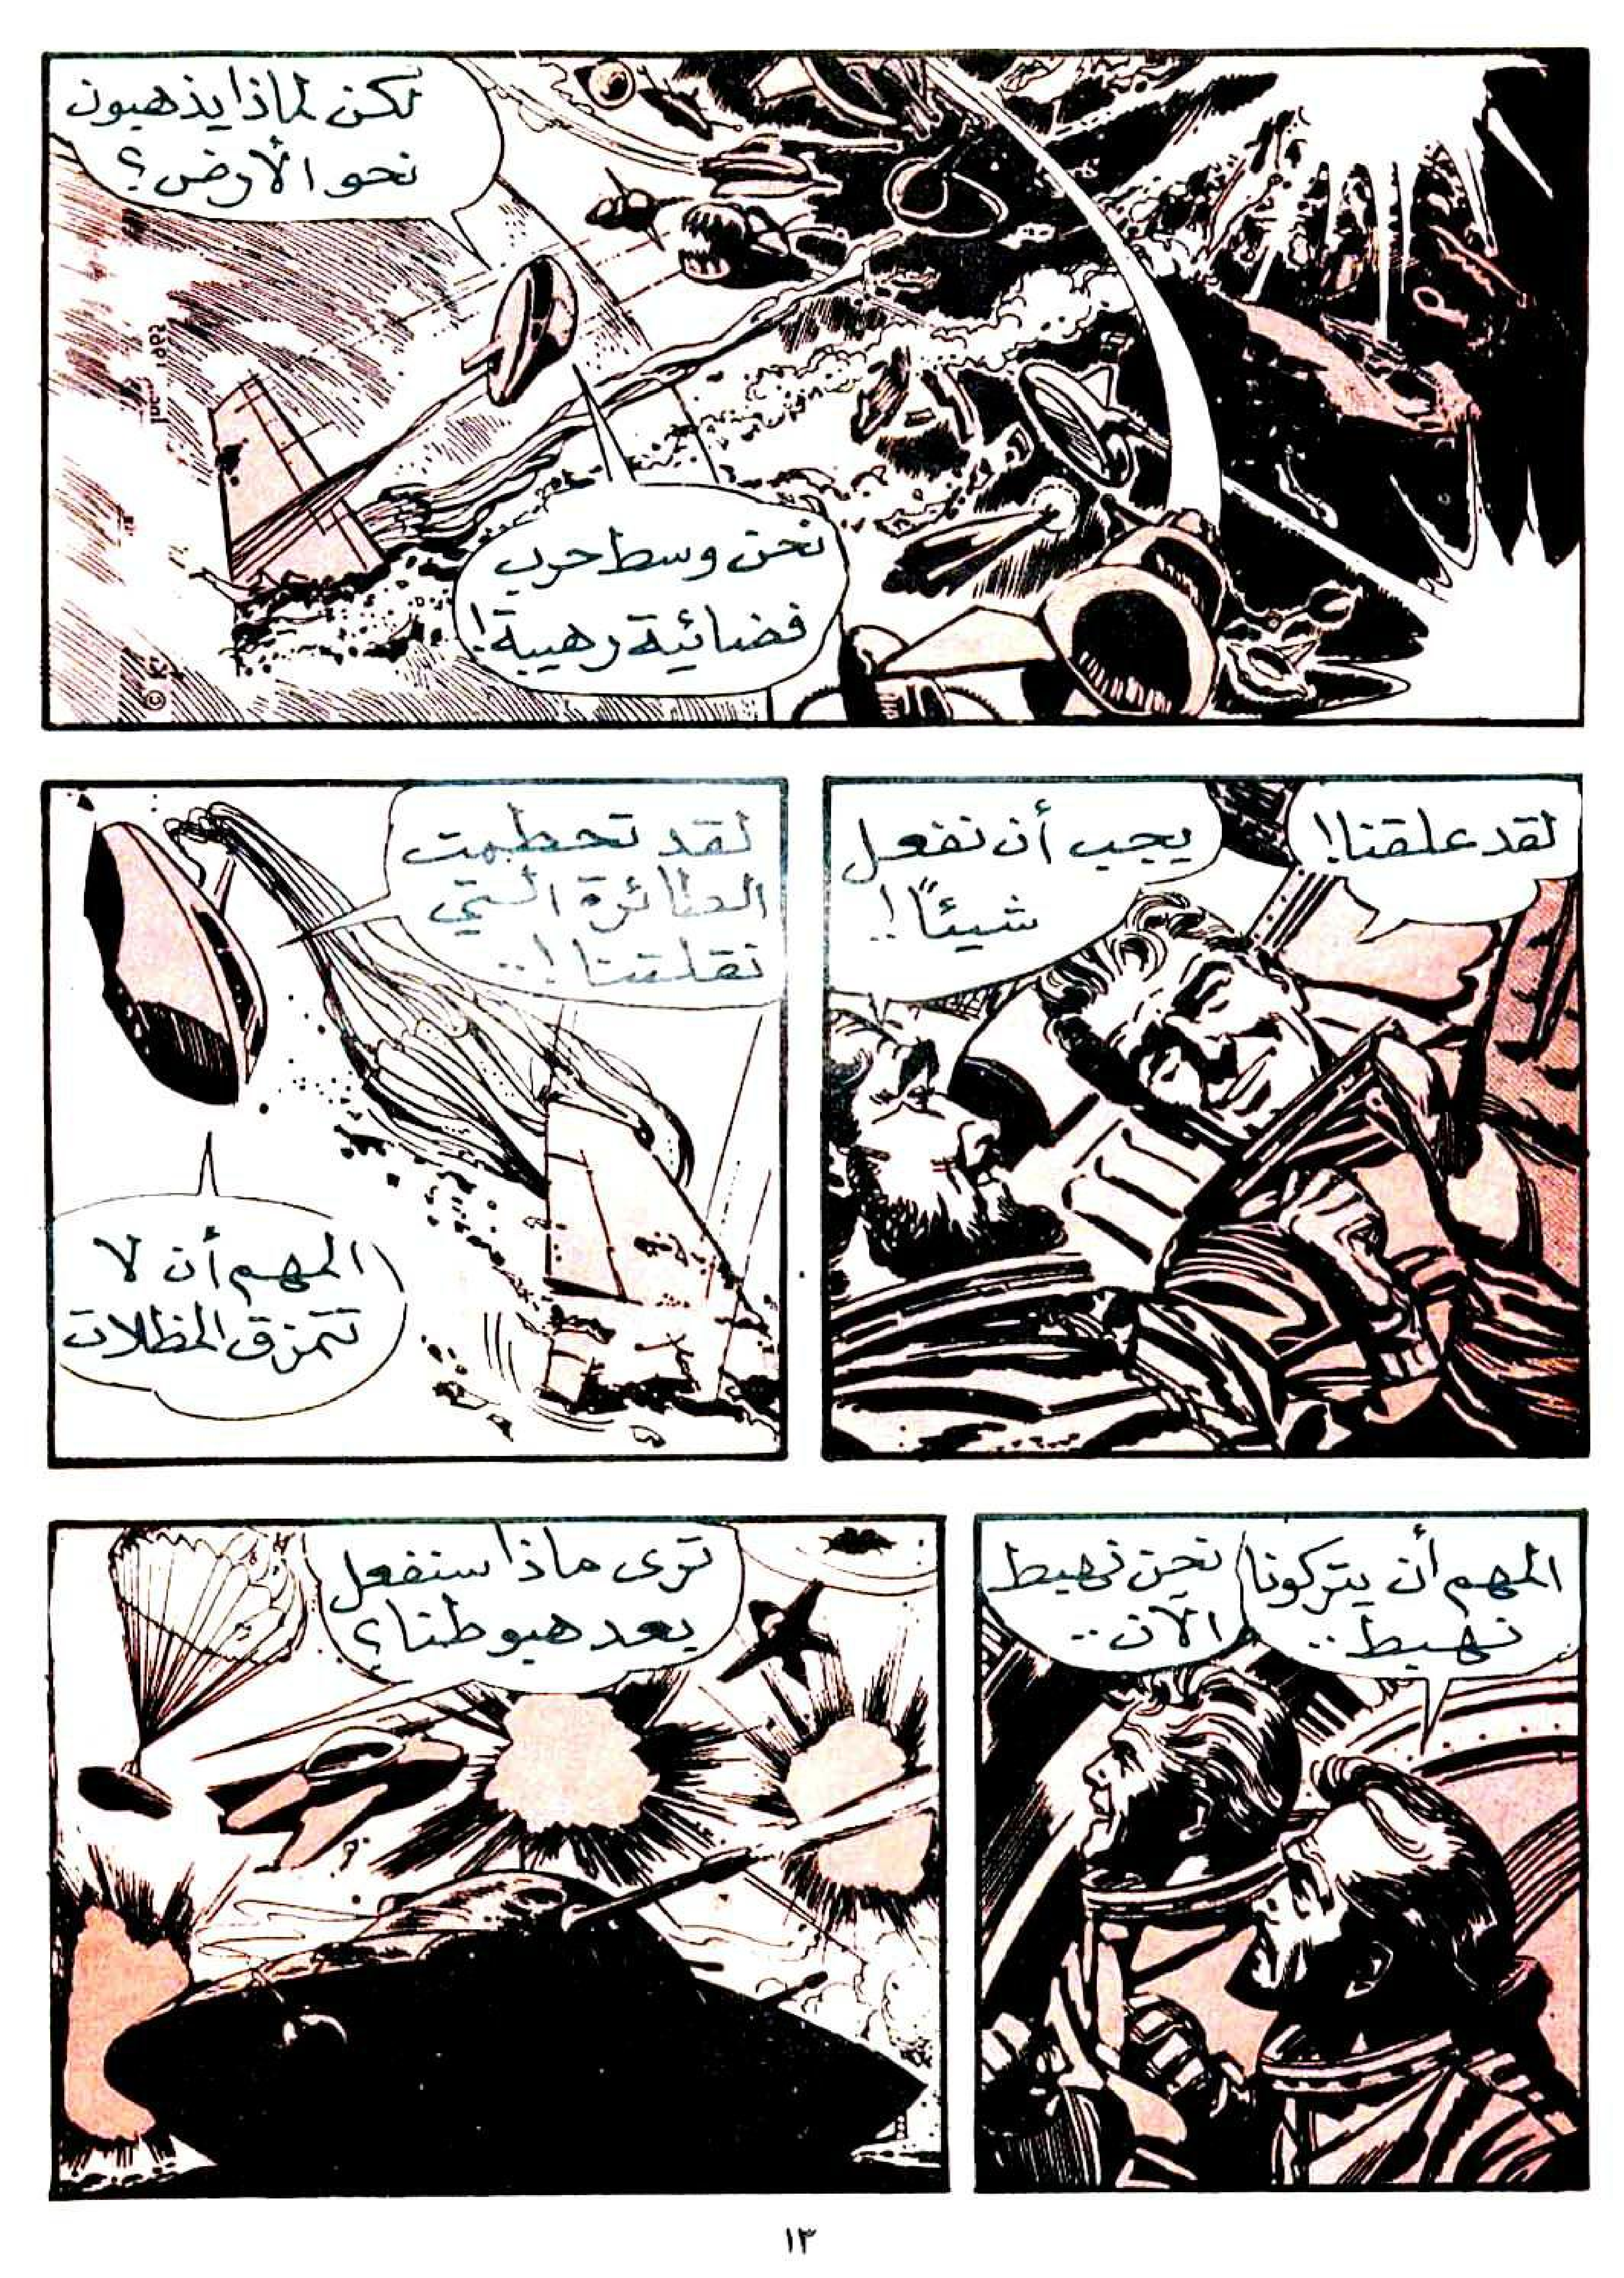 لكن لماذا يذهبون
نحو الأرض؟
نحن وسط حرب
فضائية رهيبة!
لقد علقنا!
يجب أن نفعل
شيئاً!..
لقد تحطمت
الطائرة التي
نقلتنا!..
المهم أن لا
تتمزق المظلات
المهم أن يتركونا
نهبط..
نحن نهبط
الآن..
ترى ماذا سنفعل
بعد هبوطنا؟
١٣